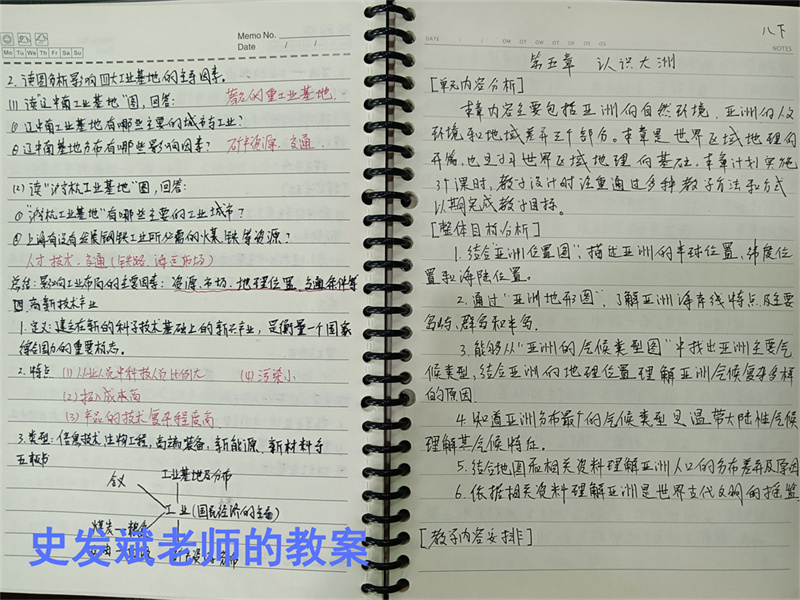 Memo No.
Mo Tu We Th Fr Sa Su
Date / /
2. 读图分析影响四大工业基地的主导因素。
(1) 读"辽中南工业基地"图,回答: 著名的重工业基地.
① 辽中南工业基地有哪些主要的城市与工业?
② 辽中南基地分布有哪些影响因素? 矿产资源. 交通
(2) 读"沪宁杭工业基地"图,回答:
① "沪宁杭工业基地"有哪些主要的工业城市?
② 上海有没有发展钢铁工业所必需的煤、铁等资源?
人才 技术、交通(铁路、海运 市场)
总结: 影响工业布局的主要因素: 资源、市场、地理位置、交通条件等
四、高新技术产业
1. 定义: 建立在新的科学技术基础上的新兴产业, 是衡量一个国家
综合国力的重要标志。
2. 特点 (1) 从业人员中科技人员比例大 (4) 污染小
(2) 投入成本高
(3) 产品的技术复杂程度高
3. 类型: 信息技术、生物工程, 高端装备, 新能源、新材料等
五 板书
工业基地及分布
含义
工业(国民经济的主导)
史发斌老师的教案
八下
DATE
NOTES
第五章 认识大洲
[单元内容分析]
本章内容主要包括亚洲的自然环境, 亚洲的人文
环境和地域差异三个部分。本章是世界区域地理的
开篇, 也是学习世界区域地理的基础, 本章计划实施
3个课时, 教学设计时注重通过多种教学方法和方式
以期完成教学目标。
[整体目标分析]
1. 结合"亚洲位置图", 描述亚洲的半球位置、纬度位
置和海陆位置。
2. 通过"亚洲地形图", 了解亚洲海岸线特点及主要
岛屿, 群岛和半岛.
3. 能够从"亚洲的气候类型图"中找出亚洲主要气
候类型, 结合亚洲的地理位置理解亚洲气候复杂多样
的原因.
4. 知道亚洲分布最广的气候类型是温带大陆性气候
理解其气候特征.
5. 结合地图和相关资料理解亚洲人口的分布差异及原因
6. 依据相关资料理解亚洲是世界古代文明的摇篮
[教学内容安排]